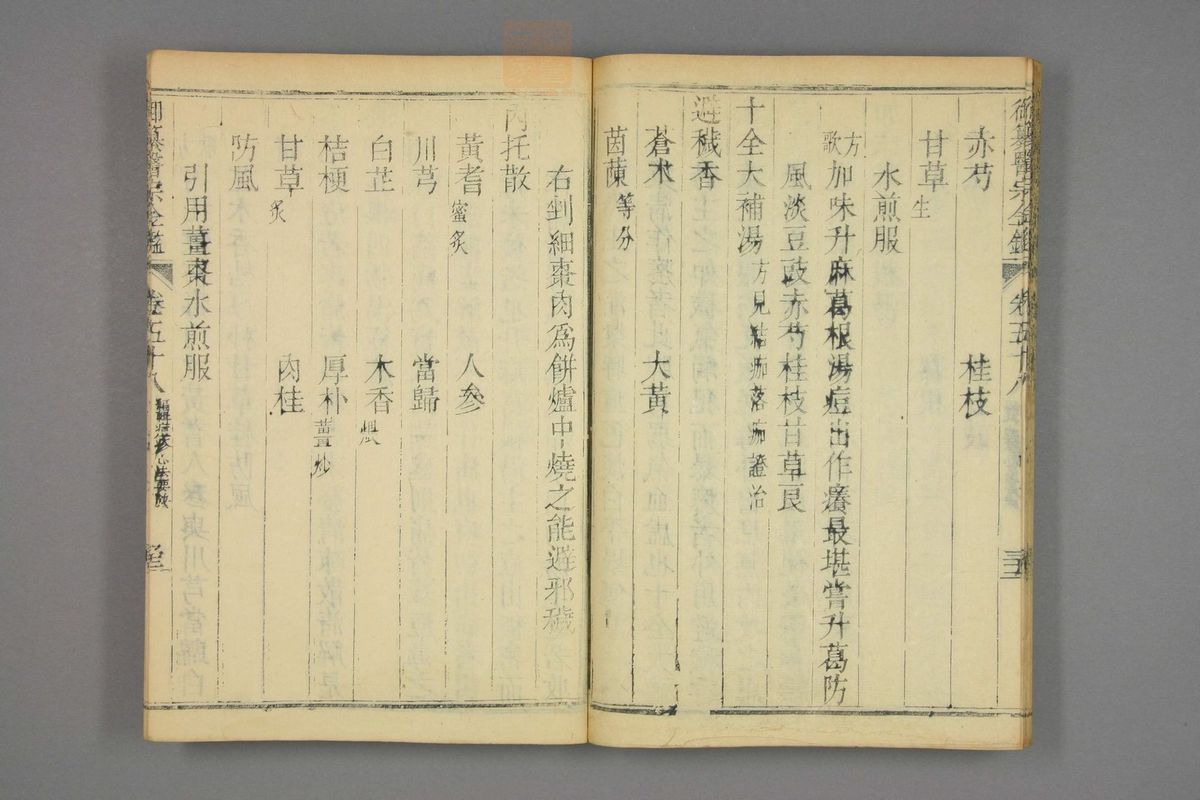 御纂醫宗金鑑 卷五十八
赤芍 桂枝
甘草生
水煎服
方歌 加味升麻葛根湯痘出作癢最堪嘗升葛防
風淡豆豉赤芍桂枝甘草良
十全大補湯方見結痂落痂證治
避穢香
蒼朮 大黃
茵蔯等分
右剉細棗肉為餅爐中燒之能避邪穢
內托散
黃耆蜜炙 人參
川芎 當歸
白芷 木香煨
桔梗 厚朴薑炒
甘草炙 肉桂
防風
引用薑棗水煎服
御纂醫宗金鑑 卷五十八 心法要訣